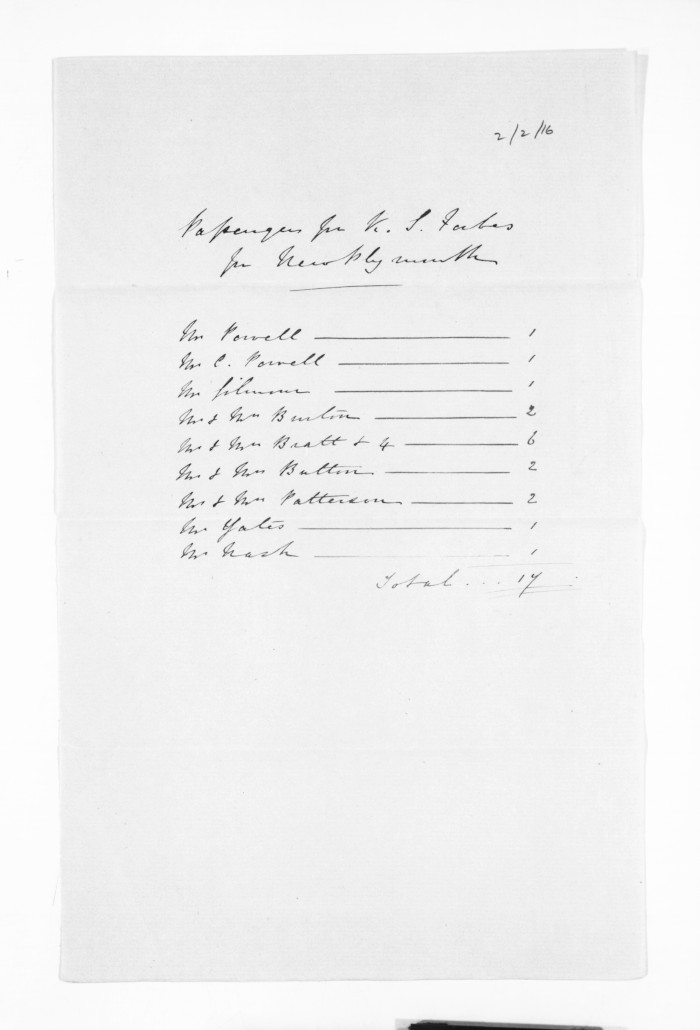 2/2/16
Passengers per Sir C. Forbes
for New Plymouth
Mr Powell 1
Mr C. Powell 1
Mr Gilmour 1
Mr & Mrs Burton 2
Mr & Mrs Bratt & 4 6
Mr & Mrs Button 2
Mr & Mrs Patterson 2
Mr Yates 1
Mr Nash 1
Total... 17